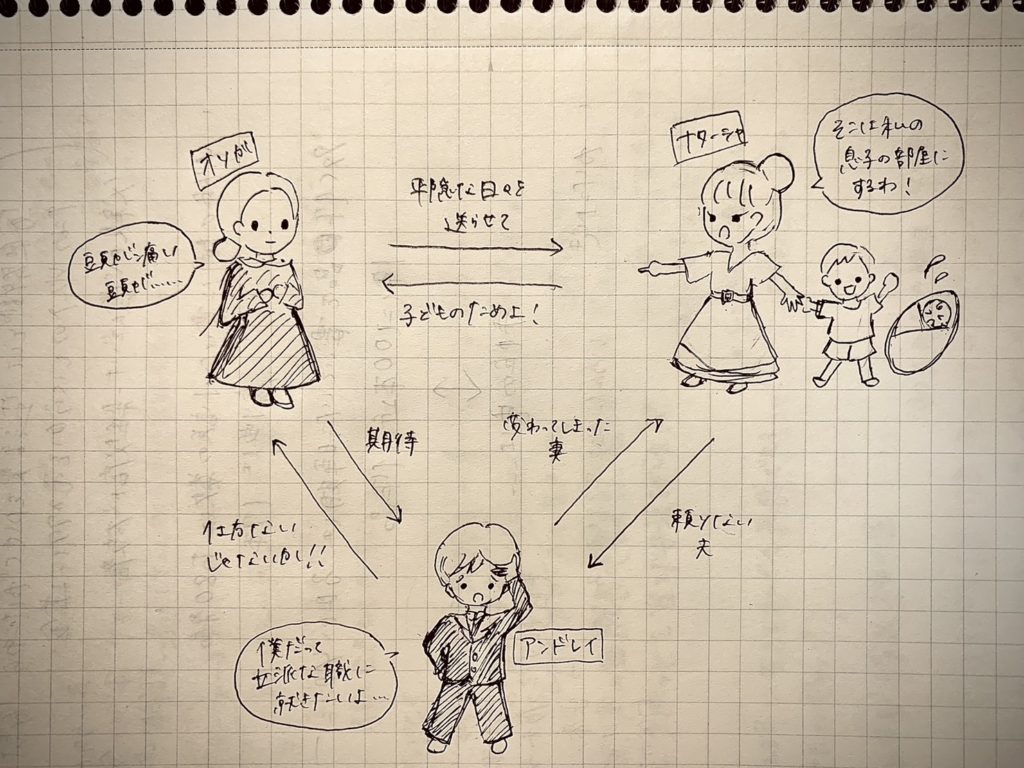 オリガ
ナターシャ
そこは私の
息子の部屋に
するわ!
平穏な日々を
送らせて
頭が痛い
頭が……
子どものためよ!
期待
変わってしまった
妻
仕方ない
じゃないか!!
頼りない
夫
アンドレイ
僕だって
立派な職に
就きたいよ…